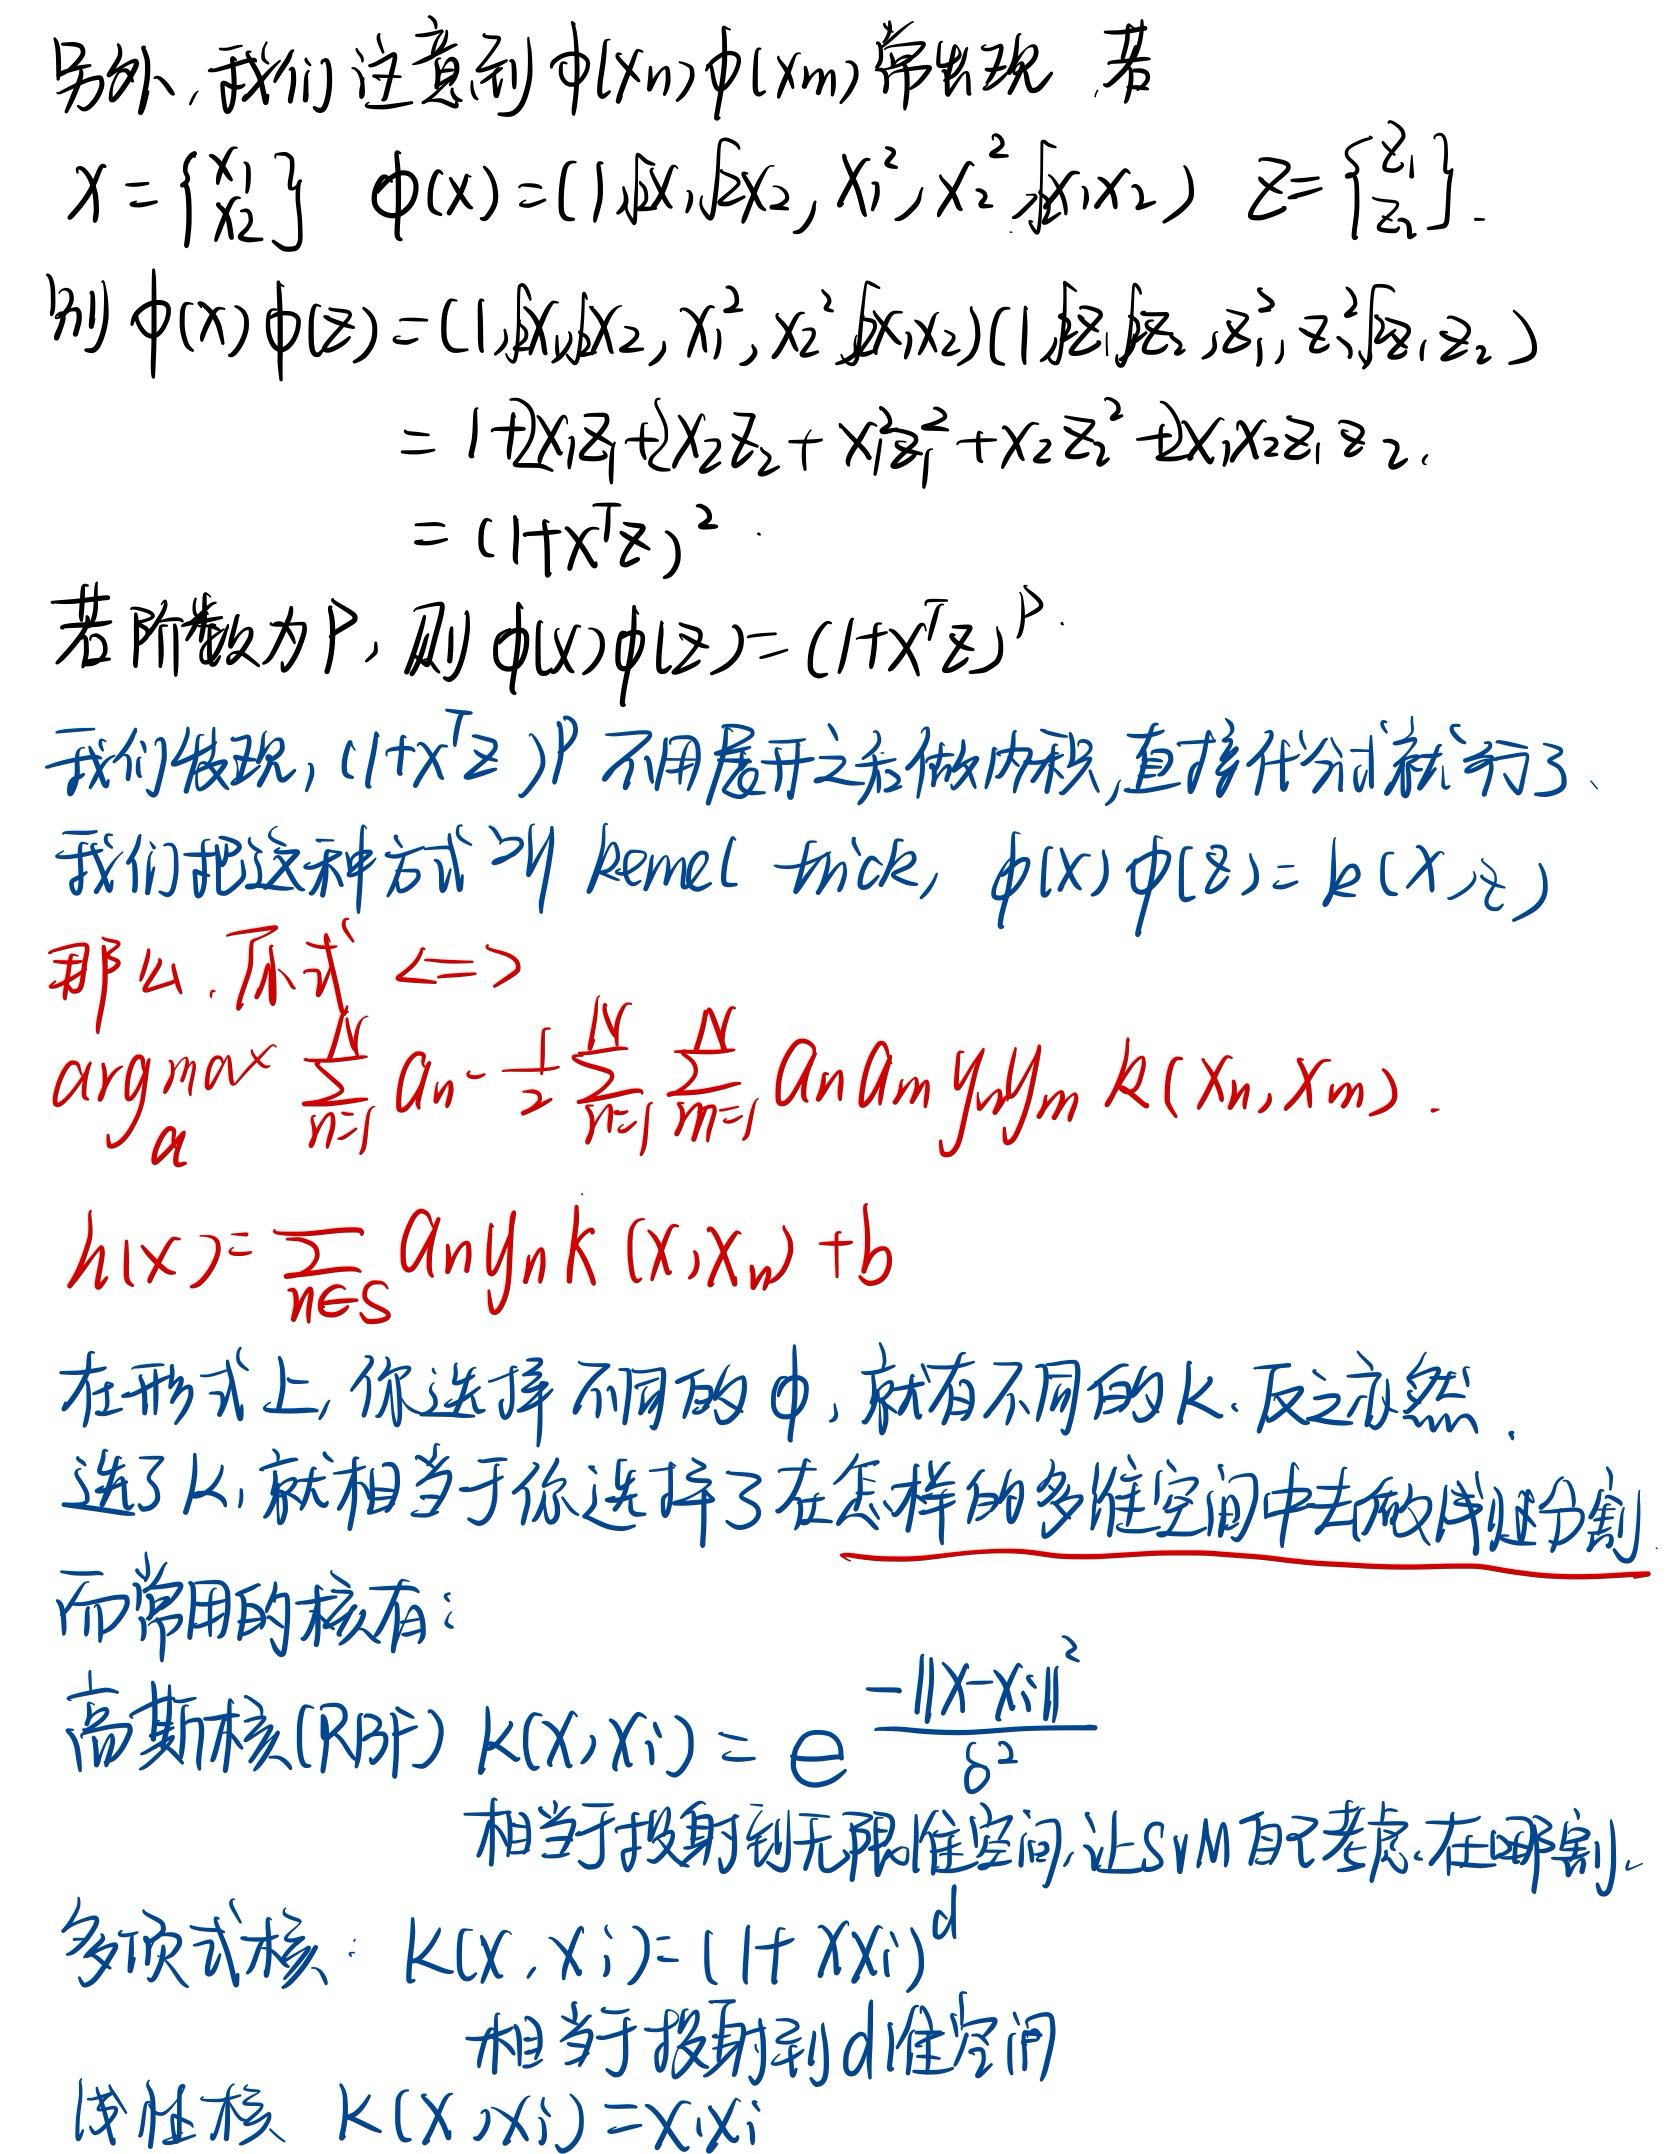 另外,我们注意到 ϕ(xn)ϕ(xm) 常出现 若
x = {x1 x2} ϕ(x) = (1,√2x1,√2x2, x1², x2²,√2x1x2) z = {z1 z2}.
则 ϕ(x)ϕ(z) = (1,√2x1,√2x2, x1², x2²,√2x1x2)(1,√2z1,√2z2,z1²,z2²,√2z1z2)
= 1+2x1z1+2x2z2+x1²z1²+x2z2²+2x1x2z1z2.
= (1+xᵀz)²
若阶数为P, 则 ϕ(x)ϕ(z)=(1+xᵀz)ᴾ.
我们发现,(1+xᵀz)ᴾ 不用展开之后做内积,直接代公式就行了、
我们把这种方式叫 kernel trick, ϕ(x)ϕ(z)=k(x,z)
那么.原式 <=>
arg max a ∑ n=1 N an - 1/2 ∑ n=1 N ∑ m=1 N an am yn ym k(xn,xm).
h(x)= ∑ n∈S an yn k(x,xn)+b
在形式上,你选择不同的ϕ,就有不同的K.反之亦然.
选了K,就相当于你选择了在怎样的多维空间中去做线性分割.
而常用的核有:
高斯核(RBF) K(x,xi) = e^(-||x-xi||²/δ²)
相当于投射到无限维空间,让SVM自己考虑.在哪割.
多项式核: K(x,xi)=(1+xxi)ᵈ
相当于投射到d维空间
线性核 K(x,xi)=x,xi